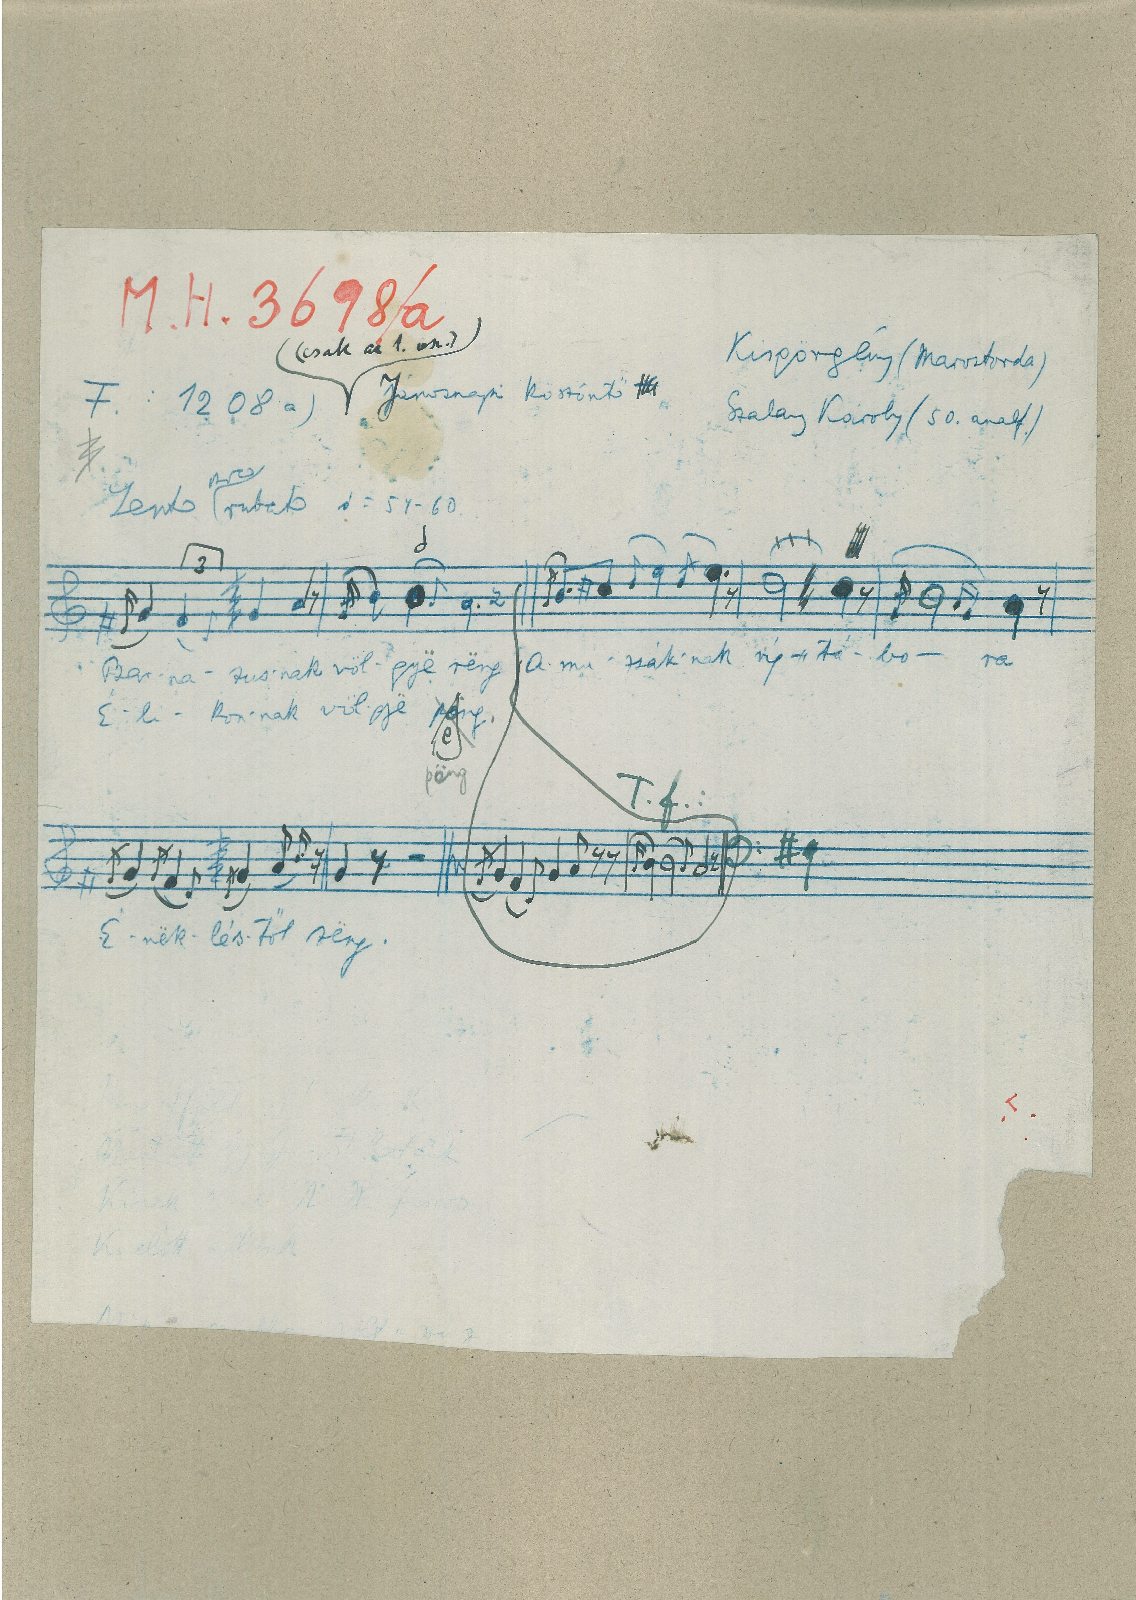 M.H. 3698/a
(csak az 1. vsz.)
Kisgörgény (Marostorda)
F. : 1208 a) Jánosnapi köszöntő
Szalay Károly (50. analf.)
Lento rubato = 54-60
3
Bar-na-zus-nak völ-gyë rëng A mu-zsák-nak tá-bo-ra
É-li-kon-nak völ-gyë
e
pëng
T.f.:
É-nëk-lés-től zëng.